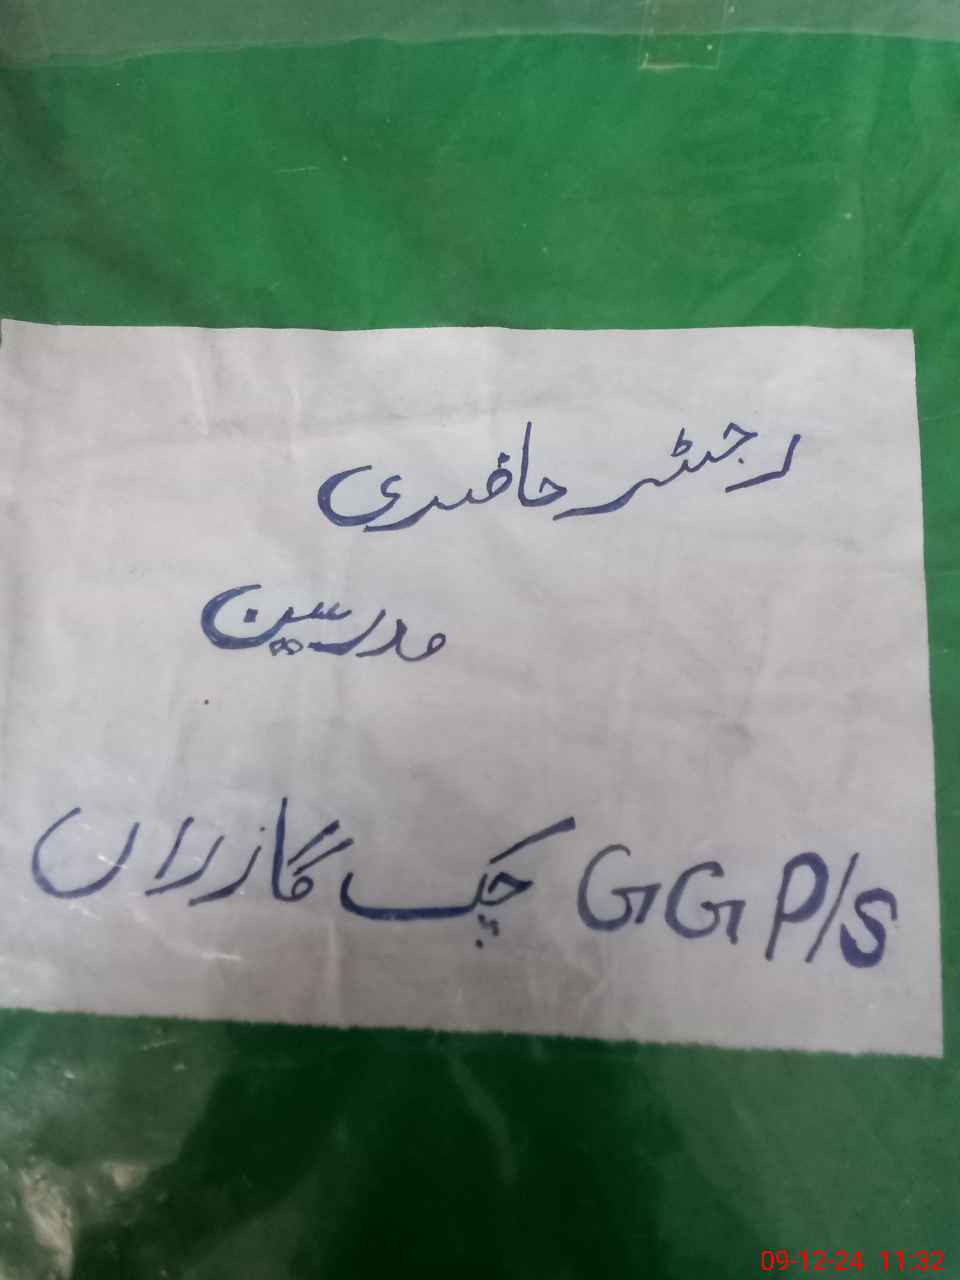 رجسٹر حاضری
مدرسین
GG P/S چک گازراں
09-12-24 11:32